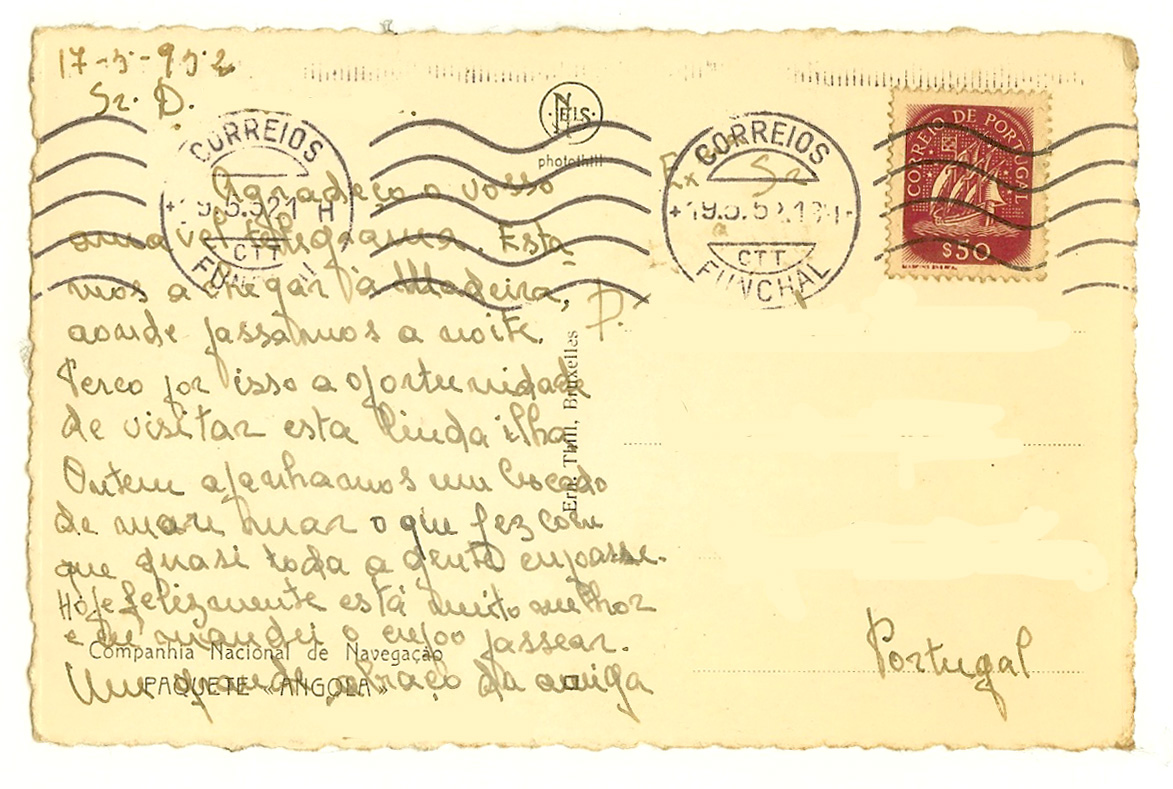 17-5-952
Sr. D.
Agradeço o vosso
amavel telegrama. Esta-
mos a chegar à Madeira,
aonde passâmos a noite.
Perco por isso a oportunidade
de visitar esta linda ilha
Ontem apanhamos um bocado
de mau mar o que fez com
que quasi toda a gente enjoasse.
Hoje felizmente está muito melhor
e eu mandei o enjoo passear.
Um grande abraço da amiga
Companhia Nacional de Navegação
PAQUETE «ANGOLA»
CORREIOS
CTT
FUNCHAL
NELS
photothill
Ern. Thill, Bruxelles
CORREIOS
CTT
FUNCHAL
CORREIO DE PORTUGAL
$50
Ex Sr
D.
Portugal